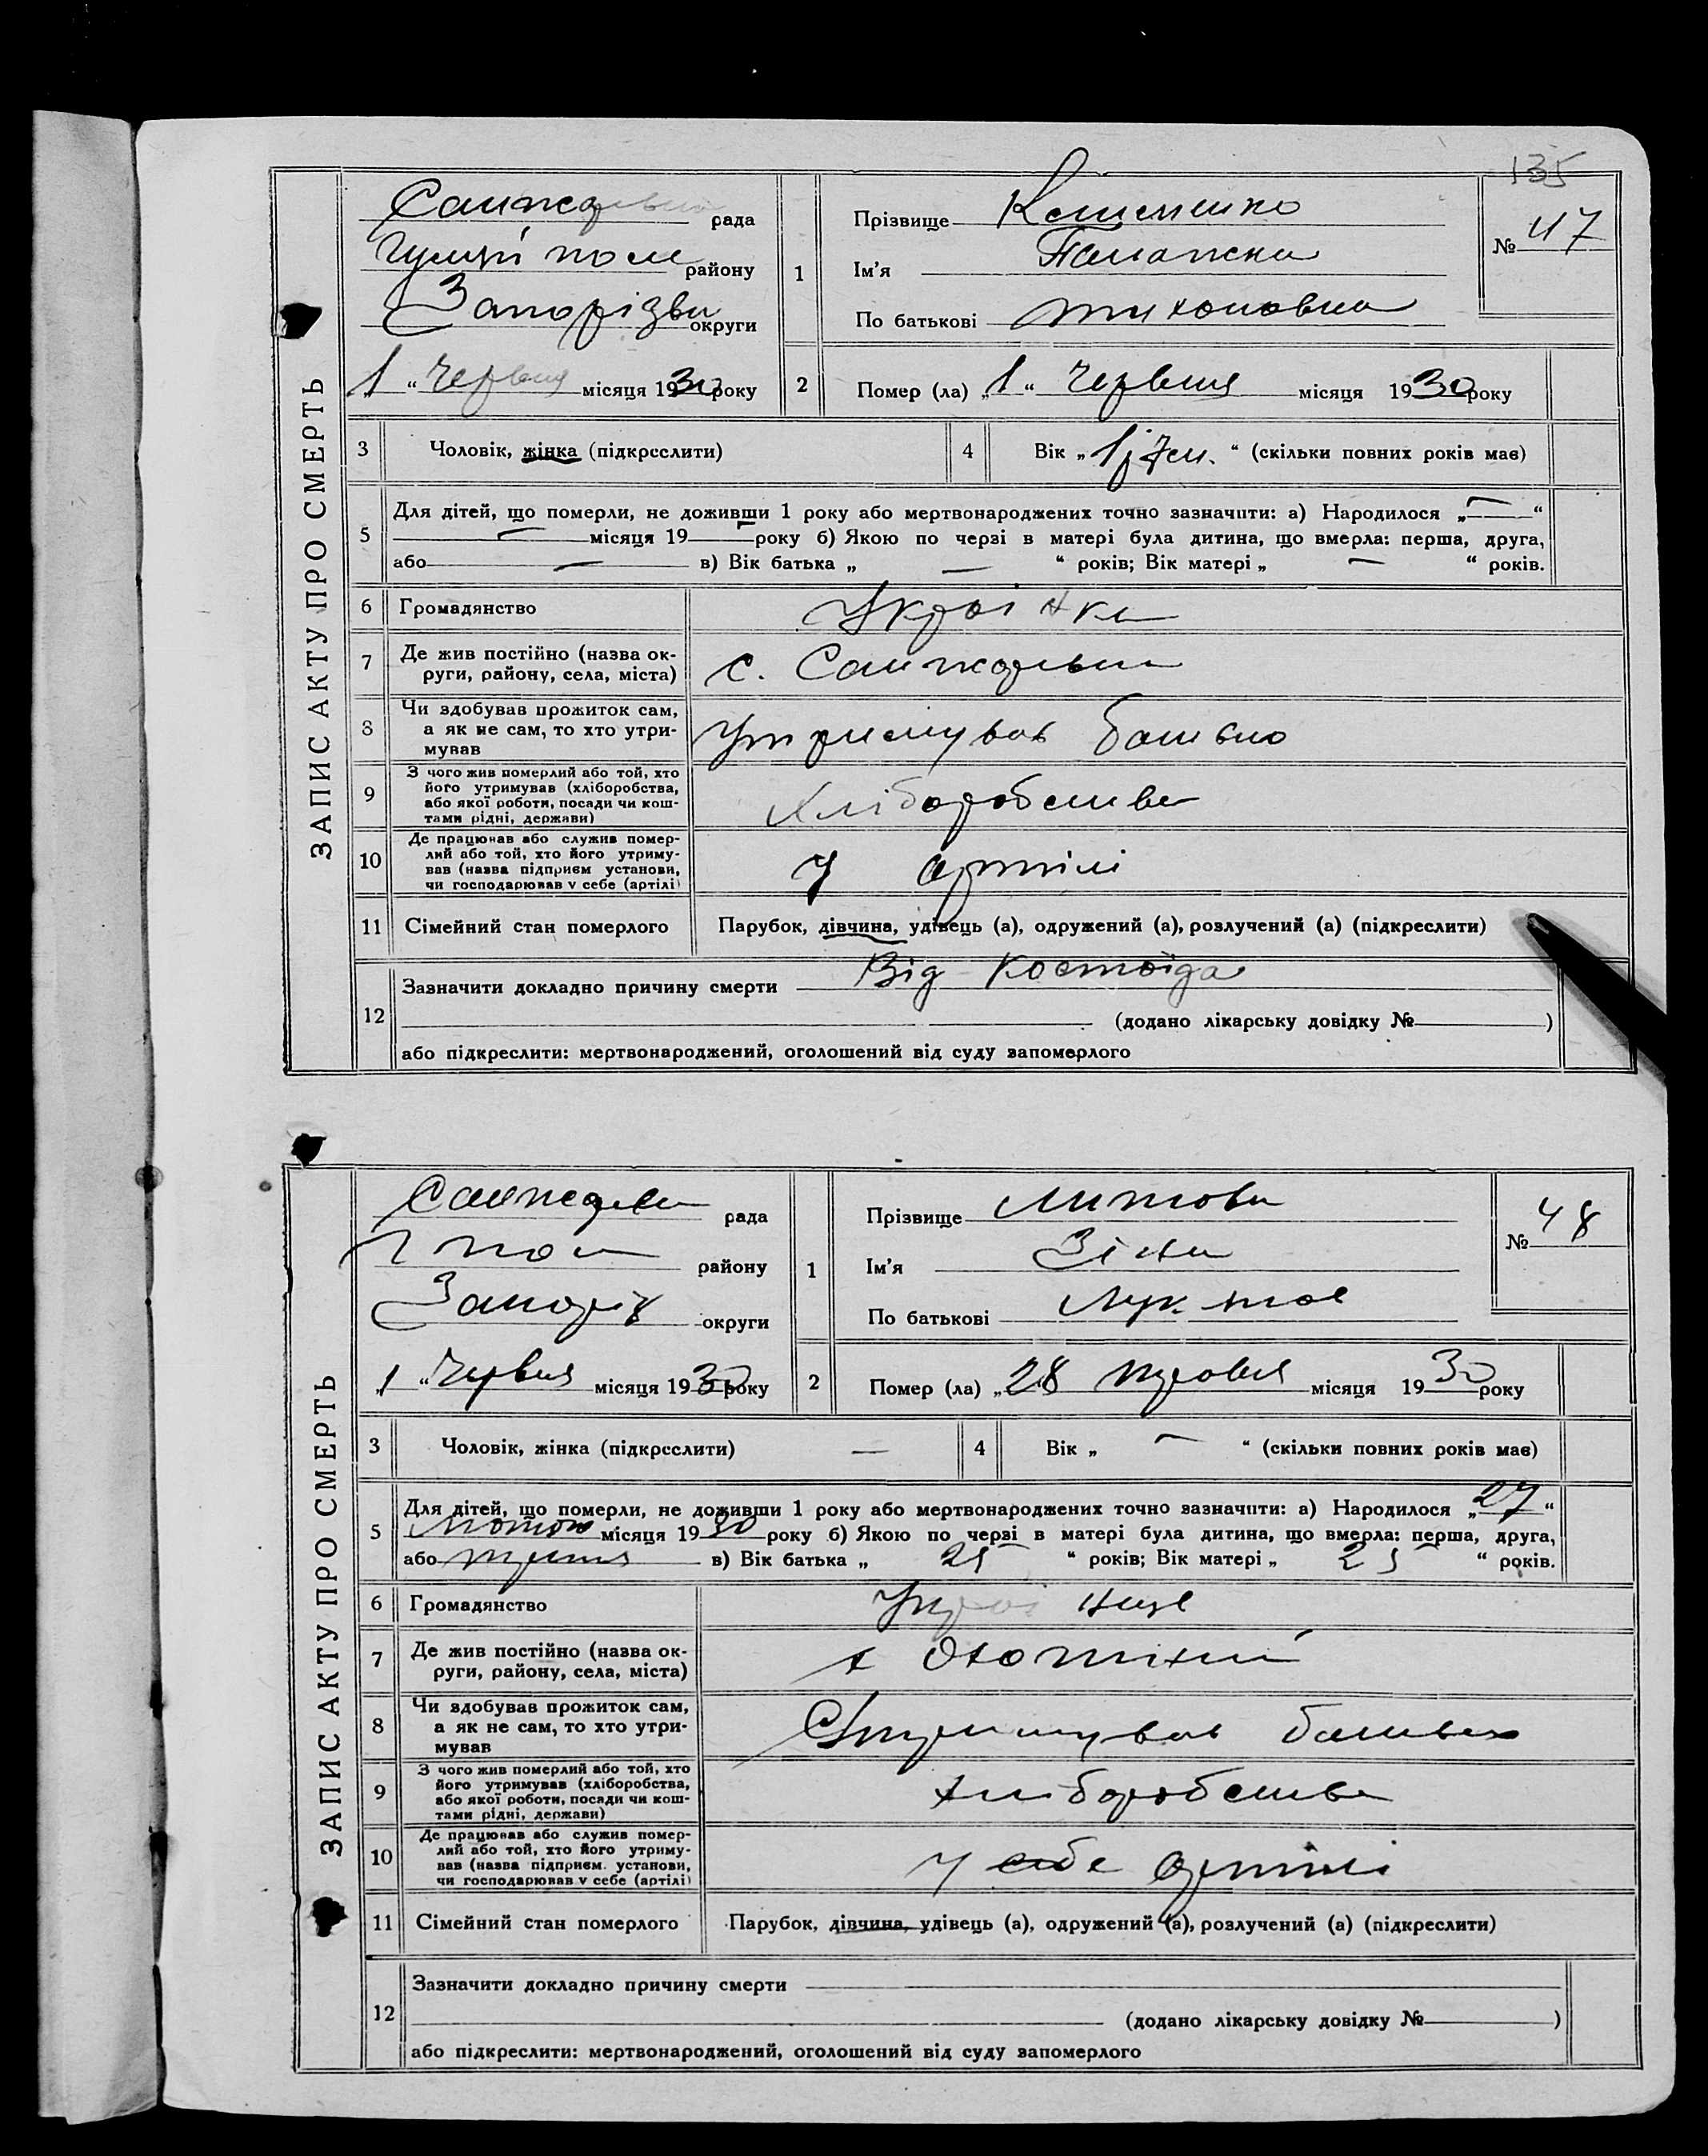 135
ЗАПИС АКТУ ПРО СМЕРТЬ
рада
району
Запорізьк округи
„1“ Червня місяця 1930 року
1
Прізвище
Ім'я
По батькові Тихоновна
№ 47
2
Помер (ла) „1“ Червня місяця 1930 року
3
Чоловік, жінка (підкреслити)
4
Вік „ “ (скільки повних років має)
5
Для дітей, що померли, не доживши 1 року або мертвонароджених точно зазначити: а) Народилося „—“
— місяця 19— року б) Якою по черзі в матері була дитина, що вмерла: перша, друга,
або — в) Вік батька „ — “ років; Вік матері „ — “ років.
6
Громадянство Українка
7
Де жив постійно (назва ок-
руги, району, села, міста)
с.
8
Чи здобував прожиток сам,
а як не сам, то хто утри-
мував
Утримував батько
9
З чого жив померлий або той, хто
його утримував (хліборобства,
або якої роботи, посади чи кош-
тами рідні, держави)
Хліборобства
10
Де працював або служив помер-
лий або той, хто його утриму-
вав (назва підприєм установи,
чи господарював у себе (артілі)
у артілі
11
Сімейний стан померлого
Парубок, дівчина, удівець (а), одружений (а), розлучений (а) (підкреслити)
12
Зазначити докладно причину смерти Від Костоїда
(додано лікарську довідку № )
або підкреслити: мертвонароджений, оголошений від суду запомерлого
ЗАПИС АКТУ ПРО СМЕРТЬ
рада
району
Запоріз округи
„1“ Червня місяця 1930 року
1
Прізвище
Ім'я Зіна
По батькові
№ 48
2
Помер (ла) „28 травня місяця 1930 року
3
Чоловік, жінка (підкреслити) —
4
Вік „ — “ (скільки повних років має)
5
Для дітей, що померли, не доживши 1 року або мертвонароджених точно зазначити: а) Народилося „27“
Лютого місяця 1930 року б) Якою по черзі в матері була дитина, що вмерла: перша, друга,
або третя в) Вік батька „ 25 “ років; Вік матері „ 25 “ років.
6
Громадянство
7
Де жив постійно (назва ок-
руги, району, села, міста)
8
Чи здобував прожиток сам,
а як не сам, то хто утри-
мував
Утримував батько
9
З чого жив померлий або той, хто
його утримував (хліборобства,
або якої роботи, посади чи кош-
тами рідні, держави)
Хліборобства
10
Де працював або служив помер-
лий або той, хто його утриму-
вав (назва підприєм. установи,
чи господарював у себе (артілі)
у себе артілі
11
Сімейний стан померлого
Парубок, дівчина, удівець (а), одружений (а), розлучений (а) (підкреслити)
12
Зазначити докладно причину смерти
(додано лікарську довідку № )
або підкреслити: мертвонароджений, оголошений від суду запомерлого